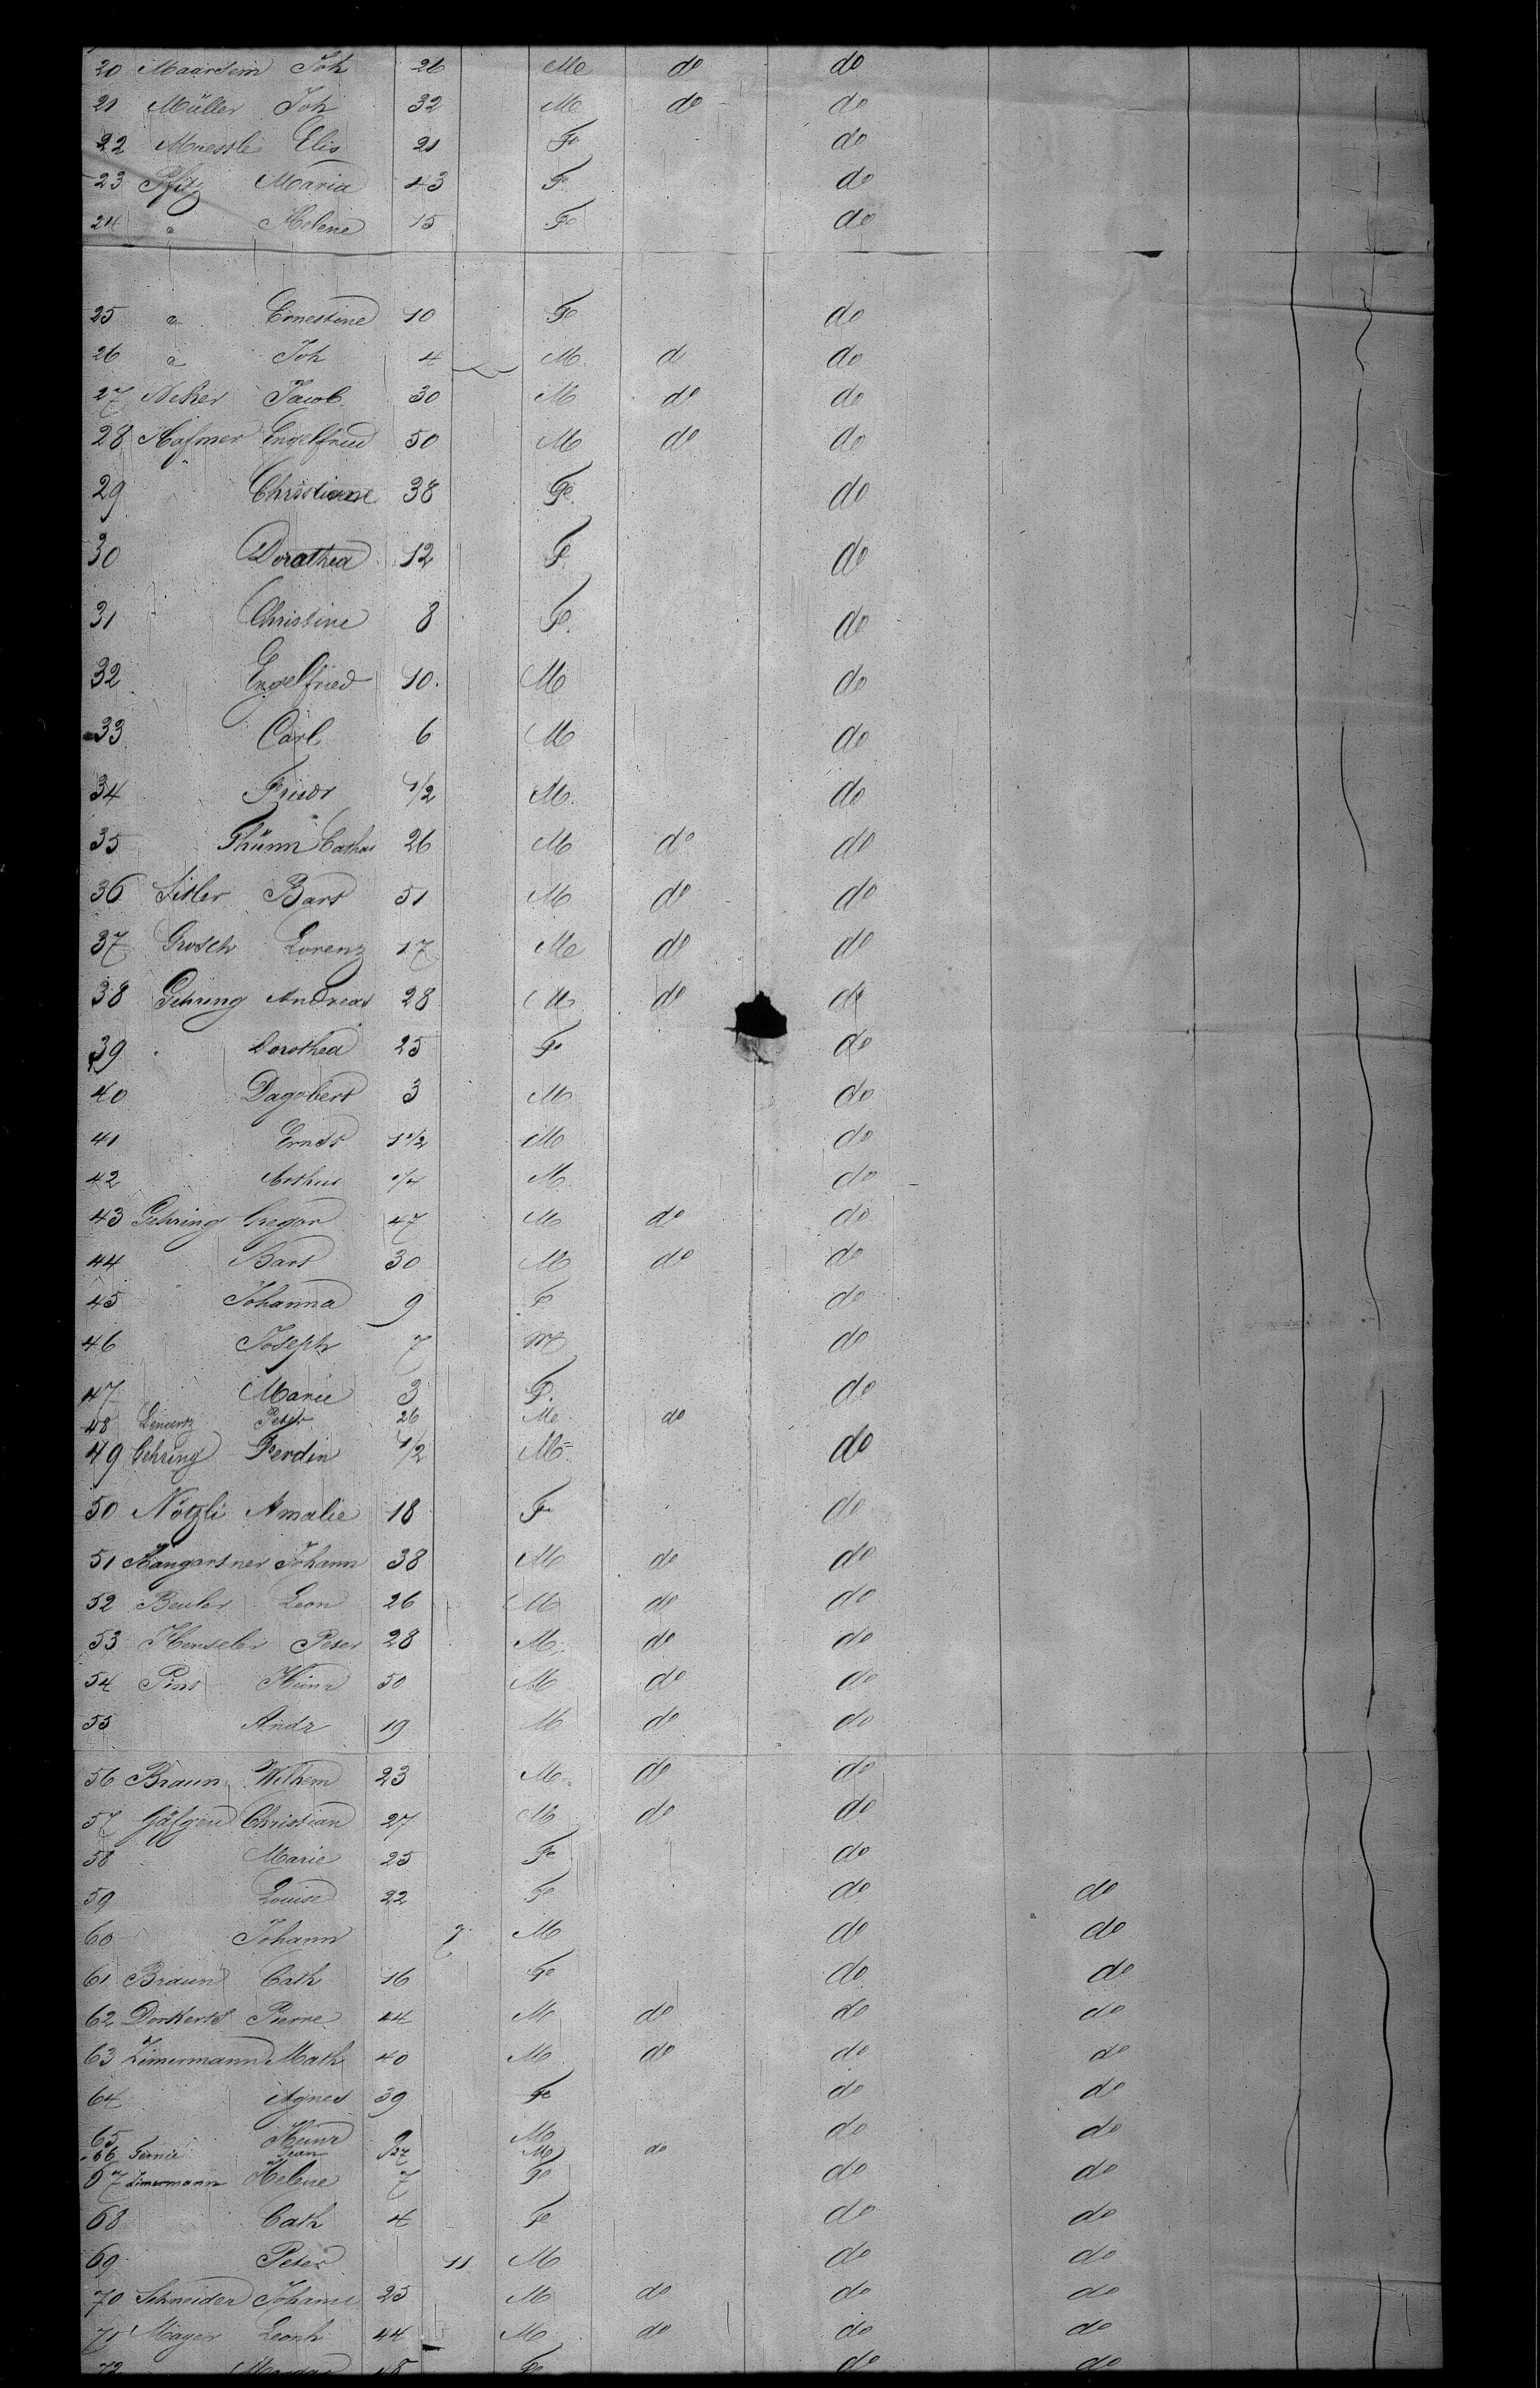 20 Maarsem Joh 26 M do do
21 Müller Joh 32 M do do
22 Maessle Elis 21 F do
23 Pfitz Maria 43 F do
24 " Helene 15 F do
25 " Ernestine 10 F do
26 " Joh 4 M d do
27 Neher Jacob 30 M do do
28 Hafmer Engelfried 50 M do do
29 Christiane 38 F do
30 Dorathea 12 F do
31 Christine 8 F. do
32 Engelfried 10. M do
33 Carl 6 M do
34 Friedr 1/2 M. do
35 Thümn 26 M do do
36 Sitler Bart 51 M do do
37 Grosch Lorenz 17 M do do
38 Gehring Andreas 28 M do do
39 Dorothea 25 F do
40 Dagobert 3 M do
41 Ernst 1 1/2 M do
42 Arthur 1/4 M. do
43 Gehring Gregor 47 M do do
44 Bart 30 M do do
45 Johanna 9 F do
46 Joseph 7 M do
47 Marie 3 F. do
48 Lenertz Peter 26 M do
49 Gehring Ferdin 1/2 M do
50 Nötzli Amalie 18 F do
51 Hangartner Johann 38 M do do
52 Beuler Leon 26 M do do
53 Henseler Peter 28 M. do do
54 Pins Heinr 50 M do do
55 Andr 19 M do do
56 Braun Wilhem 23 M. do do
57 Gäfgen Christian 27 M do do
58 Marie 25 F do
59 Louise 22 F do do
60 Johann 7 M do do
61 Braun Cath 16 F do do
62 Dorkertz Pierre 44 M do do do
63 Zimermann Math 40 M do do do
64 Agnes 39 F do do
65 Heinr 9 M do do
66 Fernie Jean 27 M do
67 Zimermann Helene 7 F do do
68 Cath 4 F do do
69 Peter 11 M do do
70 Schneider Johann 25 M do do do
71 Mayer Leonh 44 M do do do
72 18 F do do